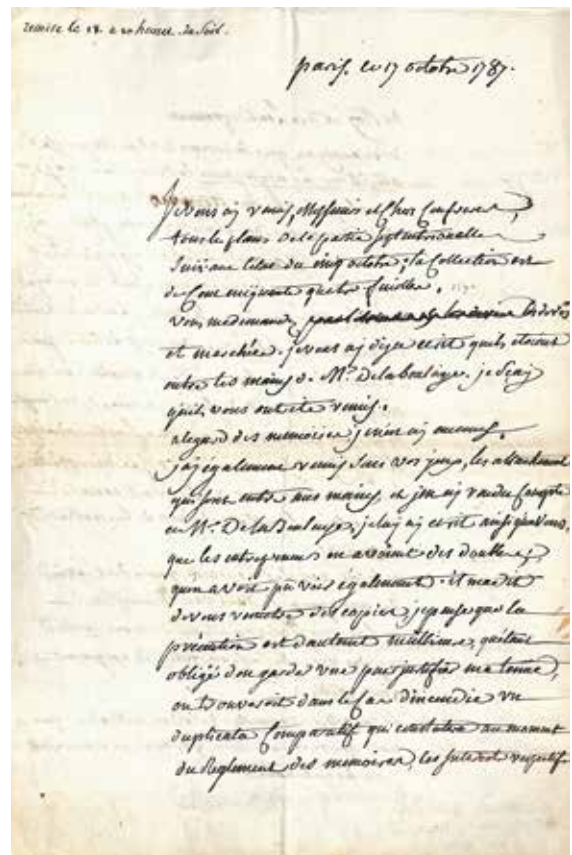 remise le 18. a 10 heures du soir.
paris. ce 17 octobre 1787.
je vous ai remis, Messieurs et Chers Confreres,
tous les plans de la partie septentrionalle
suivant l'état du cinq octobre; la Collection est
de Cent cinquante quatre feuilles.
vous me demandez les devis
et marchés. je vous ai deja ecrit quils etoient
entre les mains de Mr. Delaboulaye. je sçay
quils vous ont eté remis.
a legard des memoires je n'en ai aucuns.
jai également remis sous vos yeux, les attachements
qui sont entre mes mains, et j'en ai rendu Compte
a Mr. De la Boulaye, je lui ai ecrit ainsi qu'a vous,
que les entrepreneurs en avoient des doubles,
quon avoit pu voir également. il ma dit
de vous remettre des copies, je pense que la
précaution est dautant meilleure, quetant
obligé den garder une pour justifier ma tenue,
on trouveroit dans le Cas dincendie un
duplicata Comparatif qui constatera au moment
du Reglement des memoires, les interets respectifs